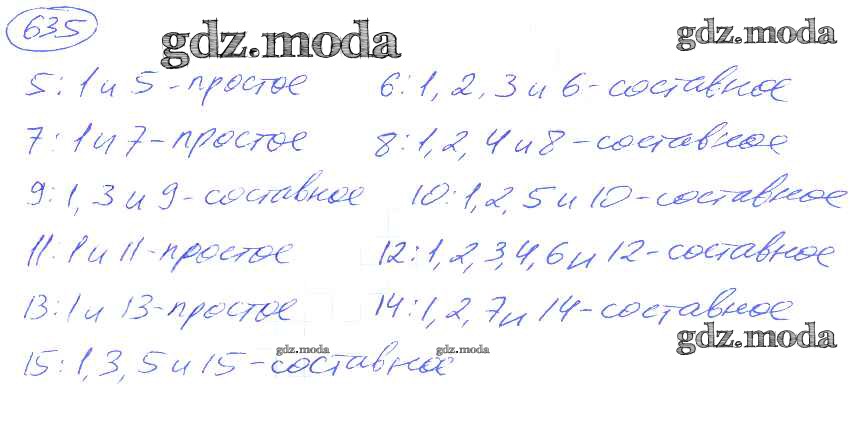 635
gdz.moda
gdz.moda
5: 1 и 5 - простое
6: 1, 2, 3 и 6 - составное
7: 1 и 7 - простое
8: 1, 2, 4 и 8 - составное
9: 1, 3 и 9 - составное
10: 1, 2, 5 и 10 - составное
11: 1 и 11 - простое
12: 1, 2, 3, 4, 6 и 12 - составное
13: 1 и 13 - простое
14: 1, 2, 7 и 14 - составное
gdz.moda
gdz.moda
gdz.moda
15: 1, 3, 5 и 15 - составное